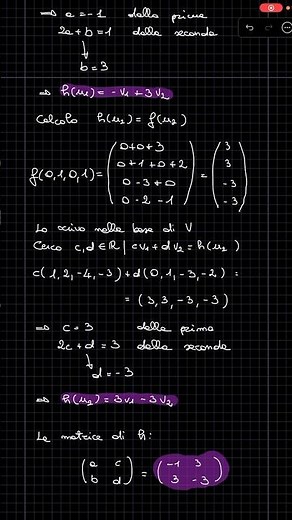 ⇒ a = -1 dalla prima
2a + b = 1 dalla seconda
↓
b = 3
⇒ h(u₁) = -v₁ + 3v₂
Calcolo h(u₂) = f(u₂)
f(0,1,0,1) = (0+0+3 0+1+0+2 0-3+0 0-2-1) = (3 3 -3 -3)
Lo scrivo nella base di V
Cerco c,d ∈ ℝ | cv₁ + dv₂ = h(u₂)
c(1,2,-4,-3) + d(0,1,-3,-2) =
= (3,3,-3,-3)
⇒ c = 3 dalla prima
2c + d = 3 dalla seconda
↓
d = -3
⇒ h(u₂) = 3v₁ - 3v₂
La matrice di h:
(a c b d) = (-1 3 3 -3)